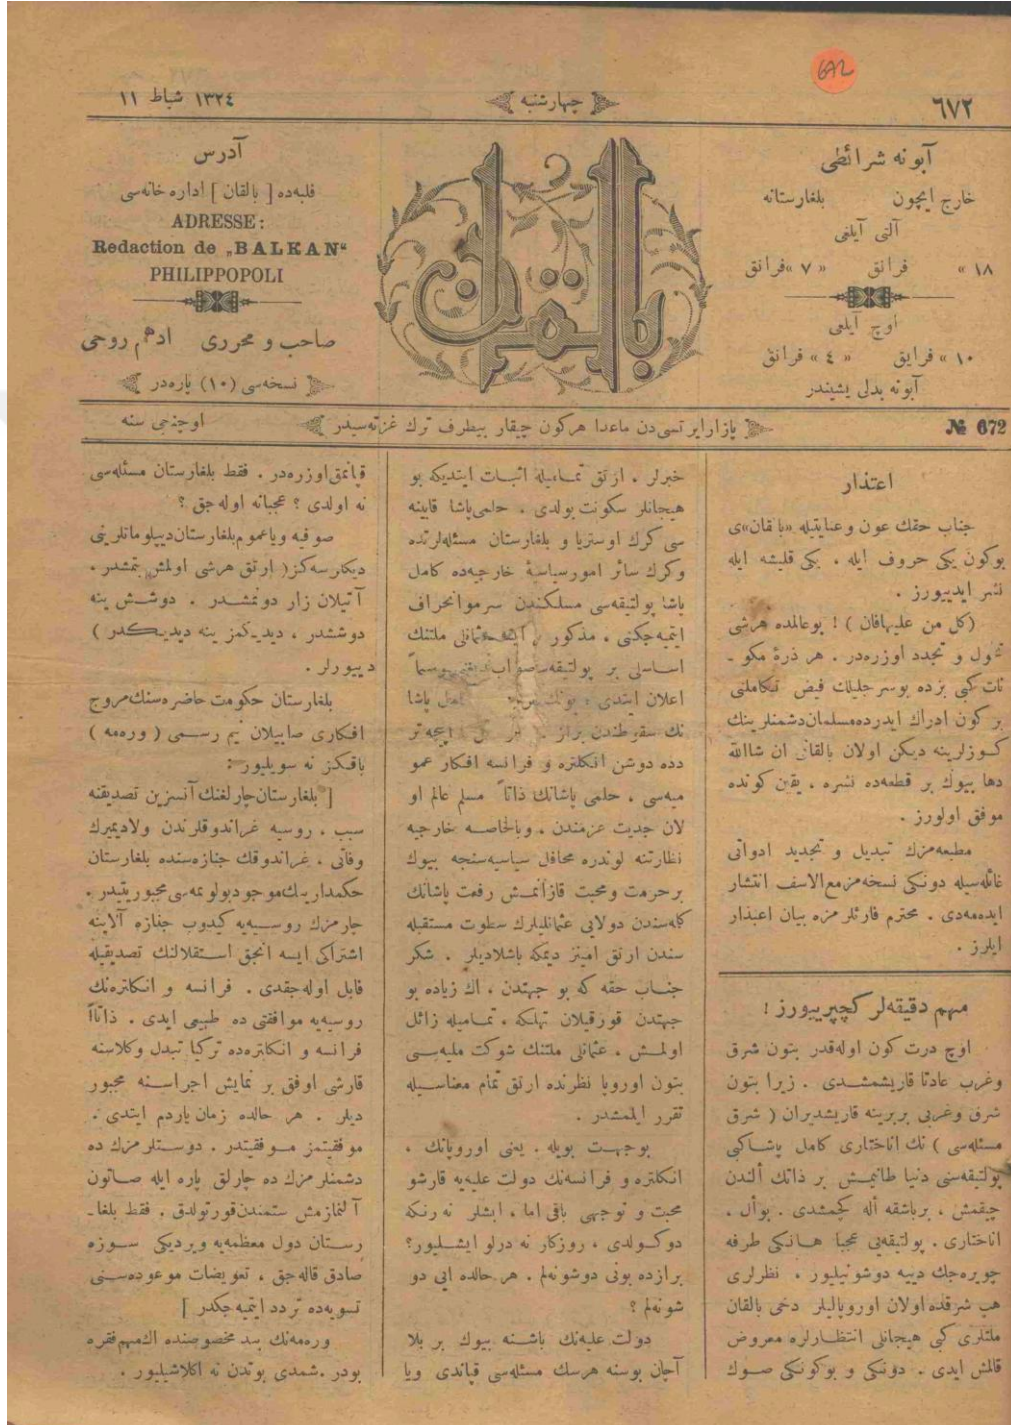 672
٦٧٢
چهارشنبه
١٣٢٤ شباط ١١
آبونه شرائطی
خارج ایچون بلغارستانه
آلتی آیلغی
١٨ » فرانق « ٧ » فرانق
اوچ آیلغی
١٠ » فرانق « ٤ » فرانق
آبونه بدلی پشیندر
بالقان
آدرس
فلبه‌ده [ بالقان ] اداره خانه‌سی
ADRESSE:
Redaction de „BALKAN“
PHILIPPOPOLI
صاحب و محرری ادهم روحی
نسخه‌سی (١٠) پاره‌در
№ 672
پازار ایرتسی‌دن ماعدا هرکون چیقار بیطرف ترك غزته‌سیدر
اوچنجی سنه
اعتذار
جناب حقك عون و عنایتیله «بالقان»ی
بوکون یکی حروف ایله ، یکی قلیشه ایله
نشر ایدییورز .
(کل من علیهافان) ! بوعالمده هرشی
تحول و تجدد اوزره‌در . هر ذرهٔ مکو ـ
نات کبی بزده بوسر جلیلك فیض تکاملنی
بر کون ادراك ایدرده‌مسلمان‌دشمنلرینك
کوزلرینه دیکن اولان بالقانی ان شاالله
دها بیوك بر قطعه‌ده نشره ، یقین کونده
موفق اولورز .
مطبعه‌مزك تبدیل و تجدید ادواتی
غائله‌سیله دونکی نسخه‌مز مع‌الاسف انتشار
ایده‌مه‌دی . محترم قارئلرمزه بیان اعتذار
ایلرز .
مهم دقیقه‌لر کچیرییورز !
اوچ درت کون اوله‌قدر بتون شرق
وغرب عادتا قاریشمشدی . زیرا بتون
شرق وغربی بربرینه قاریشدیران ( شرق
مسئله‌سی ) نك اناختاری کامل پاشاکبی
پولتیقه‌سنی دنیا طانیمش بر ذاتك ألندن
چیقمش ، برباشقه أله کچمشدی . بوأل ،
اناختاری . پولتیقه‌یی عجبا هانکی طرفه
چویره‌جك دییه دوشونیلیور ، نظرلری
هپ شرقده اولان اوروپالیلر دخی بالقان
ملتلری کبی هیجانلی انتظارلره معروض
قالمش ایدی . دونکی و بوکونکی صوك
خبرلر ، ارتق تمامیله اثبات ایتدیکه بو
هیجانلر سکونت بولدی . حلمی‌پاشا قابینه
سی کرك اوستریا و بلغارستان مسئله‌لرنده
وکرك سائر امور سیاسیهٔ خارجیه‌ده کامل
پاشا پولتیقه‌سی مسلکندن سرموانحراف
ایتمیه‌جکنی ، مذکور عثمانلی ملتنك
اساسلی بر پولتیقه‌سی
اعلان ایتدی ، پاشا
نك سقوطندن براز
دده دوشن انکلتره و فرانسه افکار عمو
میه‌سی ، حلمی پاشانك ذاتاً مسلم عالم او
لان جدیت عزمندن ، وبالخاصه خارجیه
نظارتنه لوندره محافل سیاسیه‌سنجه بیوك
بر حرمت ومحبت قازانمش رفعت پاشانك
کله‌سندن دولایی عثمانلیلرك سطوت مستقبله
سندن ارتق امینز دیمکه باشلادیلر . شکر
جناب حقه که بو جهتدن ، اك زیاده بو
جهتدن قورقیلان تهلکه ، تمامیله زائل
اولمش ، عثمانلی ملتنك شوکت ملیه‌سی
بتون اوروپا نظرنده ارتق تمام معناسیله
تقرر ایلمشدر .
بوجهت بویله . یعنی اوروپانك ،
انکلتره و فرانسه‌نك دولت علیه‌یه قارشو
محبت و توجهی باقی اما ، ایشلر نه رنکه
دوکولدی ، روزکار نه درلو ایشلیور؟
برازده بونی دوشونه‌لم . هر حالده ایی دو
شونه‌لم ؟
دولت علیه‌نك باشنه بیوك بر بلا
آچان بوسنه هرسك مسئله‌سی قپاندی ویا
قپانمق‌اوزره‌در . فقط بلغارستان مسئله‌سی
نه اولدی ؟ عجبانه اوله‌جق ؟
صوفیه ویاعموم‌بلغارستان‌دیپلوماتلرینی
دیکلرسه‌کز( ارتق هرشی اولمش بتمشدر ،
آتیلان زار دونمشدر . دوشش ینه
دوششدر ، دیدیکمز ینه دیدیکدر )
دییورلر .
بلغارستان حکومت حاضره‌سنك‌مروج
افکاری صاییلان نیم رسمی ( وره‌مه )
باقکز نه سویلیور :
[ بلغارستان‌چارلغنك آنسزین تصدیقنه
سبب ، روسیه غراندوقلرندن ولادیمیرك
وفاتی ، غراندوقك جنازه‌سنده بلغارستان
حکمداریـنك‌موجودبولونمه‌سی مجبوریتیدر .
چارمزك روسیه‌یه کیدوب جنازه آلاینه
اشتراکی ایسه انجق استقلالنك تصدیقیله
قابل اوله‌جقدی . فرانسه و انکلتره‌نك
روسیه‌یه موافقتی ده طبیعی ایدی . ذاتاً
فرانسه و انکلتره‌ده ترکیا تبدل وکلاسنه
قارشی اوفق بر نمایش اجراسنه مجبور
دیلر . هر حالده زمان یاردم ایتدی .
موفقیتمز موفقیتدر . دوستلرمزك ده
دشمنلرمزك ده چارلق پاره ایله صاتون
آلنمازمش ستمندن‌قورتولدق . فقط بلغاـ
رستان دول معظمه‌یه ویردیکی سوزه
صادق قاله‌جق ، تعویضات موعوده‌سنی
تسویه‌ده تردد ایتمیه‌جکدر ]
وره‌مه‌نك بند مخصوصنده اك‌مهم‌فقره
بودر .شمدی بوندن نه اکلاشیلیور .